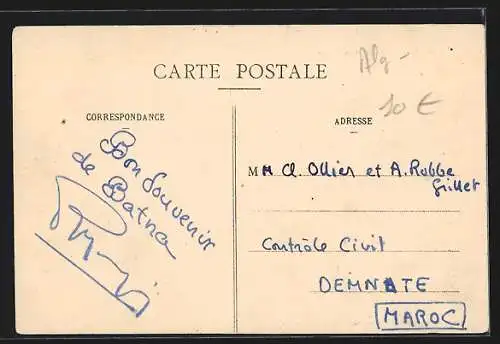 CARTE POSTALE
Alg-
10 €
CORRESPONDANCE
ADRESSE
Bon Souvenir
de Batna
MM Cl. Ollier et A. Robbe
Grillet
Contrôle Civil
DEMNATE
MAROC